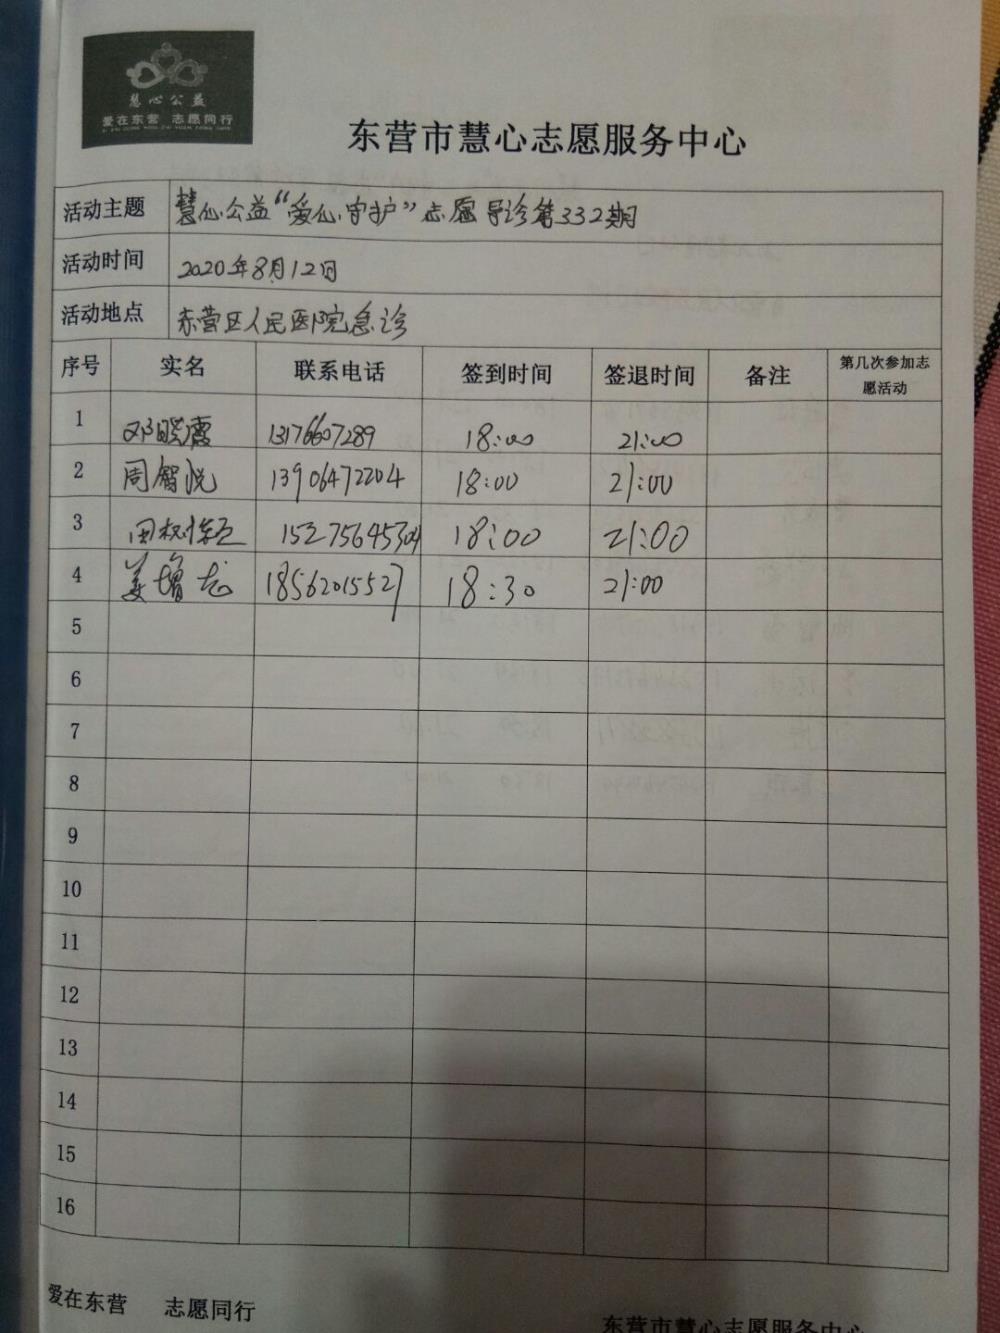 慧心公益
爱在东营 志愿同行
东营市慧心志愿服务中心
活动主题 慧心公益“爱心守护”志愿导诊第332期
活动时间 2020年8月12日
活动地点 东营区人民医院急诊
序号 实名 联系电话 签到时间 签退时间 备注 第几次参加志愿活动
1 邓晓霞 13176607289 18:00 21:00
2 周智悦 13906472204 18:00 21:00
3 15275645304 18:00 21:00
4 姜增志 18562015527 18:30 21:00
5
6
7
8
9
10
11
12
13
14
15
16
爱在东营 志愿同行
东营市慧心志愿服务中心